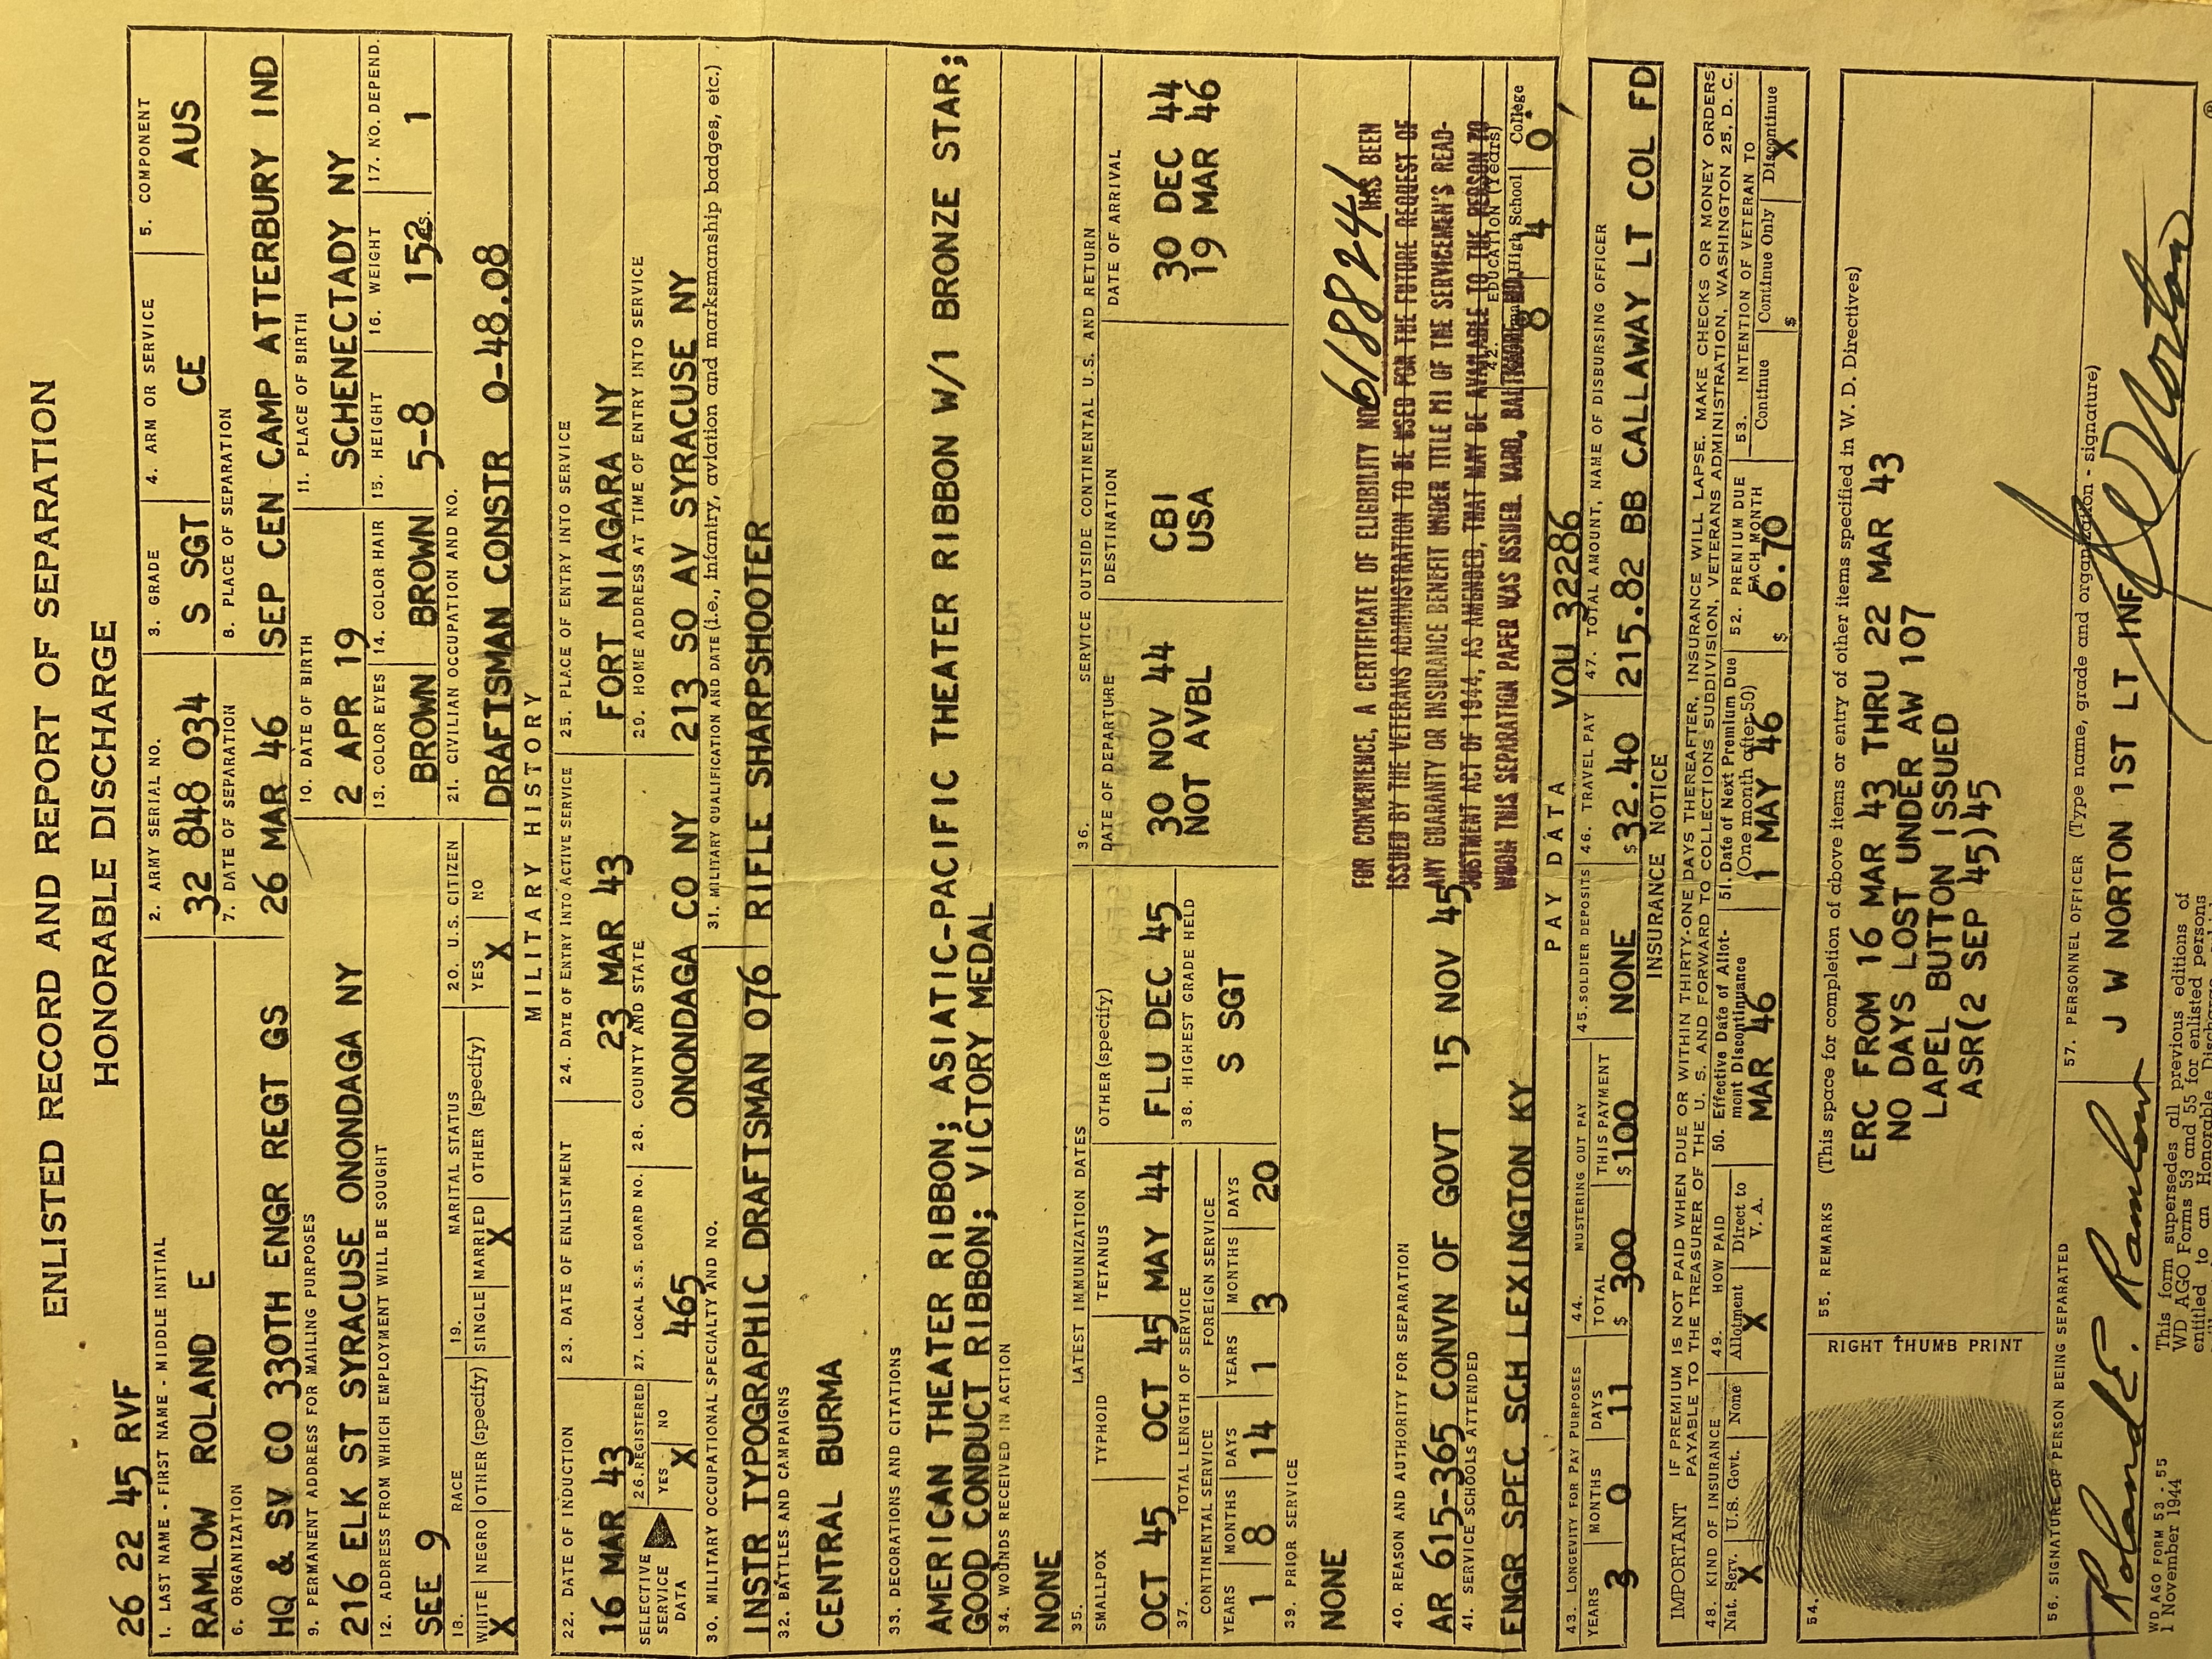 ENLISTED RECORD AND REPORT OF SEPARATION
HONORABLE DISCHARGE
26 22 45 RVF
1. LAST NAME - FIRST NAME - MIDDLE INITIAL
RAMLOW ROLAND E
2. ARMY SERIAL NO.
32 848 034
3. GRADE
S SGT
4. ARM OR SERVICE
CE
5. COMPONENT
AUS
6. ORGANIZATION
HQ & SV CO 330TH ENGR REGT GS
7. DATE OF SEPARATION
26 MAR 46
8. PLACE OF SEPARATION
SEP CEN CAMP ATTERBURY IND
9. PERMANENT ADDRESS FOR MAILING PURPOSES
216 ELK ST SYRACUSE ONONDAGA NY
10. DATE OF BIRTH
2 APR 19
11. PLACE OF BIRTH
SCHENECTADY NY
12. ADDRESS FROM WHICH EMPLOYMENT WILL BE SOUGHT
SEE 9
13. COLOR EYES
BROWN
14. COLOR HAIR
BROWN
15. HEIGHT
5-8
16. WEIGHT
152 LBS.
17. NO. DEPEND.
1
18. RACE
WHITE NEGRO OTHER (specify)
X
19. MARITAL STATUS
SINGLE MARRIED OTHER (specify)
X
20. U.S. CITIZEN
YES NO
X
21. CIVILIAN OCCUPATION AND NO.
DRAFTSMAN CONSTR 0-48.08
MILITARY HISTORY
22. DATE OF INDUCTION
16 MAR 43
23. DATE OF ENLISTMENT
24. DATE OF ENTRY INTO ACTIVE SERVICE
23 MAR 43
25. PLACE OF ENTRY INTO SERVICE
FORT NIAGARA NY
SELECTIVE SERVICE DATA
26. REGISTERED
YES NO
X
27. LOCAL S.S. BOARD NO.
465
28. COUNTY AND STATE
ONONDAGA CO NY
29. HOME ADDRESS AT TIME OF ENTRY INTO SERVICE
213 SO AV SYRACUSE NY
30. MILITARY OCCUPATIONAL SPECIALTY AND NO.
INSTR TYPOGRAPHIC DRAFTSMAN 076
31. MILITARY QUALIFICATION AND DATE (i.e., infantry, aviation and marksmanship badges, etc.)
RIFLE SHARPSHOOTER
32. BATTLES AND CAMPAIGNS
CENTRAL BURMA
33. DECORATIONS AND CITATIONS
AMERICAN THEATER RIBBON; ASIATIC-PACIFIC THEATER RIBBON W/1 BRONZE STAR;
GOOD CONDUCT RIBBON; VICTORY MEDAL
34. WOUNDS RECEIVED IN ACTION
NONE
35. LATEST IMMUNIZATION DATES
SMALLPOX TYPHOID TETANUS OTHER (specify)
OCT 45 OCT 45 MAY 44 FLU DEC 45
36. SERVICE OUTSIDE CONTINENTAL U.S. AND RETURN
DATE OF DEPARTURE DESTINATION DATE OF ARRIVAL
30 NOV 44 CBI 30 DEC 44
NOT AVBL USA 19 MAR 46
37. TOTAL LENGTH OF SERVICE
CONTINENTAL SERVICE FOREIGN SERVICE
YEARS MONTHS DAYS YEARS MONTHS DAYS
1 8 14 1 3 20
38. HIGHEST GRADE HELD
S SGT
39. PRIOR SERVICE
NONE
FOR CONVENIENCE, A CERTIFICATE OF ELIGIBILITY NO 6188244 HAS BEEN
ISSUED BY THE VETERANS ADMINISTRATION TO BE USED FOR THE FUTURE REQUEST OF
ANY GUARANTY OR INSURANCE BENEFIT UNDER TITLE III OF THE SERVICEMEN'S READ-
JUSTMENT ACT OF 1944, AS AMENDED, THAT MAY BE AVAILABLE TO THE PERSON TO
WHOM THIS SEPARATION PAPER WAS ISSUED. VARO, BALTIMORE, MD.
40. REASON AND AUTHORITY FOR SEPARATION
AR 615-365 CONVN OF GOVT 15 NOV 45
41. SERVICE SCHOOLS ATTENDED
ENGR SPEC SCH LEXINGTON KY
42. EDUCATION (Years)
Grammar High School College
8 4 0
PAY DATA VOU 32286
43. LONGEVITY FOR PAY PURPOSES
YEARS MONTHS DAYS
3 0 11
44. MUSTERING OUT PAY
TOTAL THIS PAYMENT
$ 300 $ 100
45. SOLDIER DEPOSITS
NONE
46. TRAVEL PAY
$ 32.40
47. TOTAL AMOUNT, NAME OF DISBURSING OFFICER
215.82 BB CALLAWAY LT COL FD
INSURANCE NOTICE
IMPORTANT IF PREMIUM IS NOT PAID WHEN DUE OR WITHIN THIRTY-ONE DAYS THEREAFTER, INSURANCE WILL LAPSE. MAKE CHECKS OR MONEY ORDERS
PAYABLE TO THE TREASURER OF THE U. S. AND FORWARD TO COLLECTIONS SUBDIVISION, VETERANS ADMINISTRATION, WASHINGTON 25, D. C.
48. KIND OF INSURANCE
Nat. Serv. U.S. Govt. None
X
49. HOW PAID
Allotment Direct to V. A.
X
50. Effective Date of Allotment Discontinuance
MAR 46
51. Date of Next Premium Due (One month after 50)
1 MAY 46
52. PREMIUM DUE EACH MONTH
$ 6.70
53. INTENTION OF VETERAN TO
Continue Continue Only Discontinue
$ X
54.
RIGHT THUMB PRINT
55. REMARKS (This space for completion of above items or entry of other items specified in W. D. Directives)
ERC FROM 16 MAR 43 THRU 22 MAR 43
NO DAYS LOST UNDER AW 107
LAPEL BUTTON ISSUED
ASR(2 SEP 45)45
56. SIGNATURE OF PERSON BEING SEPARATED
Roland E. Ramlow
57. PERSONNEL OFFICER (Type name, grade and organization - signature)
J W NORTON 1ST LT INF
JW Norton
WD AGO FORM 53 - 55
1 November 1944
This form supersedes all previous editions of
WD AGO Forms 53 and 55 for enlisted persons
entitled to an Honorable Discharge